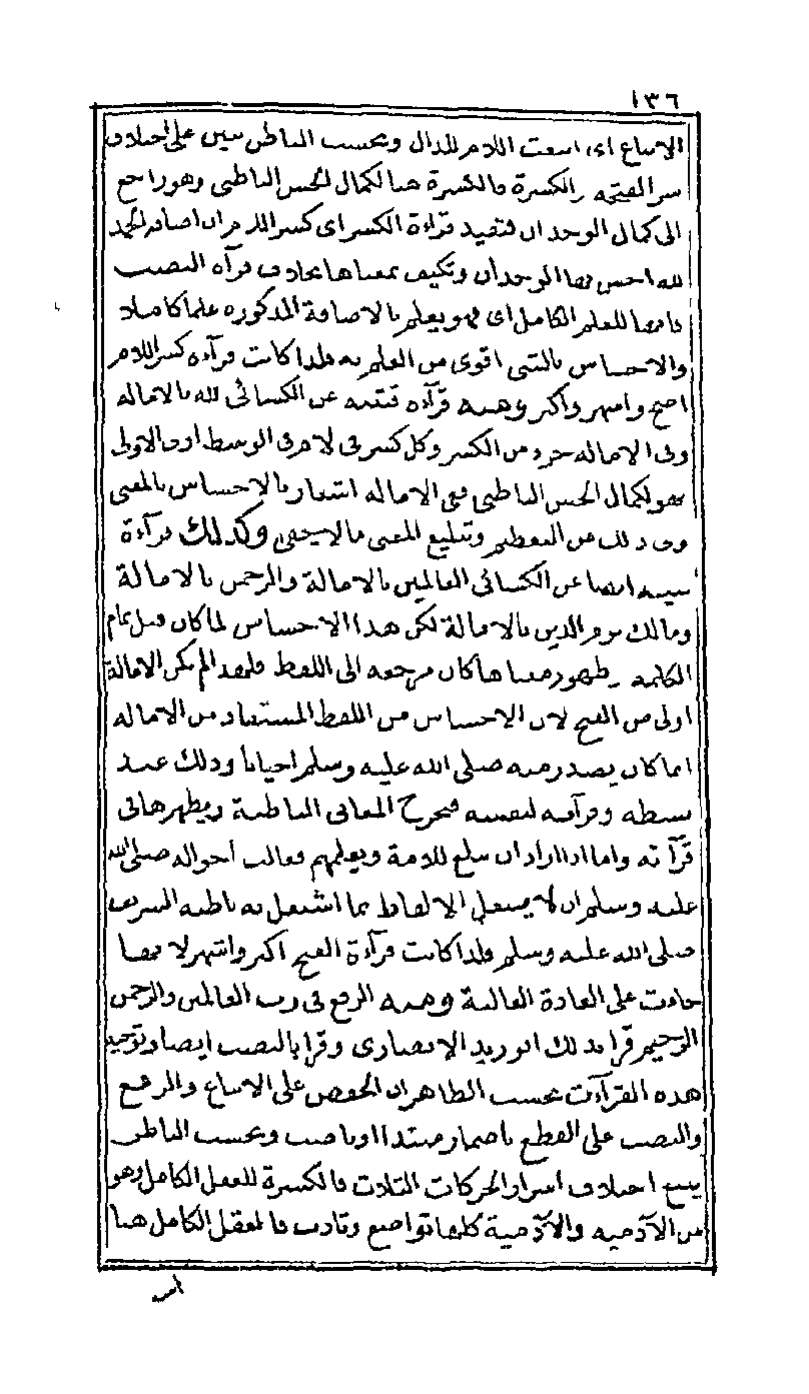 ١٣٦
الاتباع اى اتبعت اللام للدال وبحسب الباطن يبين على اختلاف
سر الفتحة والكسرة فالكسرة هنا لكمال الحس الباطنى وهو راجع
الى كمال الوجدان فتفيد قراءة الكسر اى كسر اللام ان اضافة الحمد
لله احس بها الوجدان وتكيف بمعناها بخلاف قرآة النصب
فانها للعلم الكامل اى فهو يعلم بالاضافة المذكورة علما كاملا
والاحساس بالشى اقوى من العلم به فلذا كانت قرآءة كسر اللام
اصح واشهر واكثر وهنه قرآءة قتيبة عن الكسائى لله بالامالة
وفى الامالة جزء من الكسر وكل كسر فى لام فى الوسط او فى الاولى
فهو لكمال الحس الباطنى ففى الامالة اشعار بالاحساس بالمعنى
وفى ذلك من التعظيم وتبليغ المعنى مالا يخفى وكذلك قرآءة
قتيبة ايضا عن الكسائى العالمين بالامالة والرحمن بالامالة
ومالك يوم الدين بالامالة لكن هذا الاحساس لما كان قبل تمام
الكلمة وظهور معناها كان مرجعه الى اللفظ فلهذا لم تكن الامالة
اولى من الفتح لان الاحساس من اللفظ المستفاد من الامالة
انما كان يصدر منه صلى الله عليه وسلم احيانا وذلك عند
بسطه وقرآءته لنفسه فتخرج المعانى الباطنة ويظهرها فى
قرآءته واما اذا اراد ان يبلغ للامة ويعلمهم فغالب احواله صلى الله
عليه وسلم ان لا يشغل الالفاظ بما اشتغل به باطنه الشريف
صلى الله عليه وسلم فلذا كانت قرآءة الفتح اكثر واشهر لانها
جاءت على العادة الغالبة وهنه الرفع فى رب العالمين والرحمن
الرحيم قرا بذلك ابو زيد الانصارى وقرا بالنصب ايضا وتوجيه
هذه القرآءت بحسب الظاهر ان الخفض على الاتباع والرفع
والنصب على القطع باضمار مبتدا او ناصب وبحسب الباطن
يتبع اختلاف اسرار الحركات الثلاث فالكسرة للعقل الكامل وهو
من الآدمية والآدمية كلها تواضع وتادب فالعقل الكامل هنا